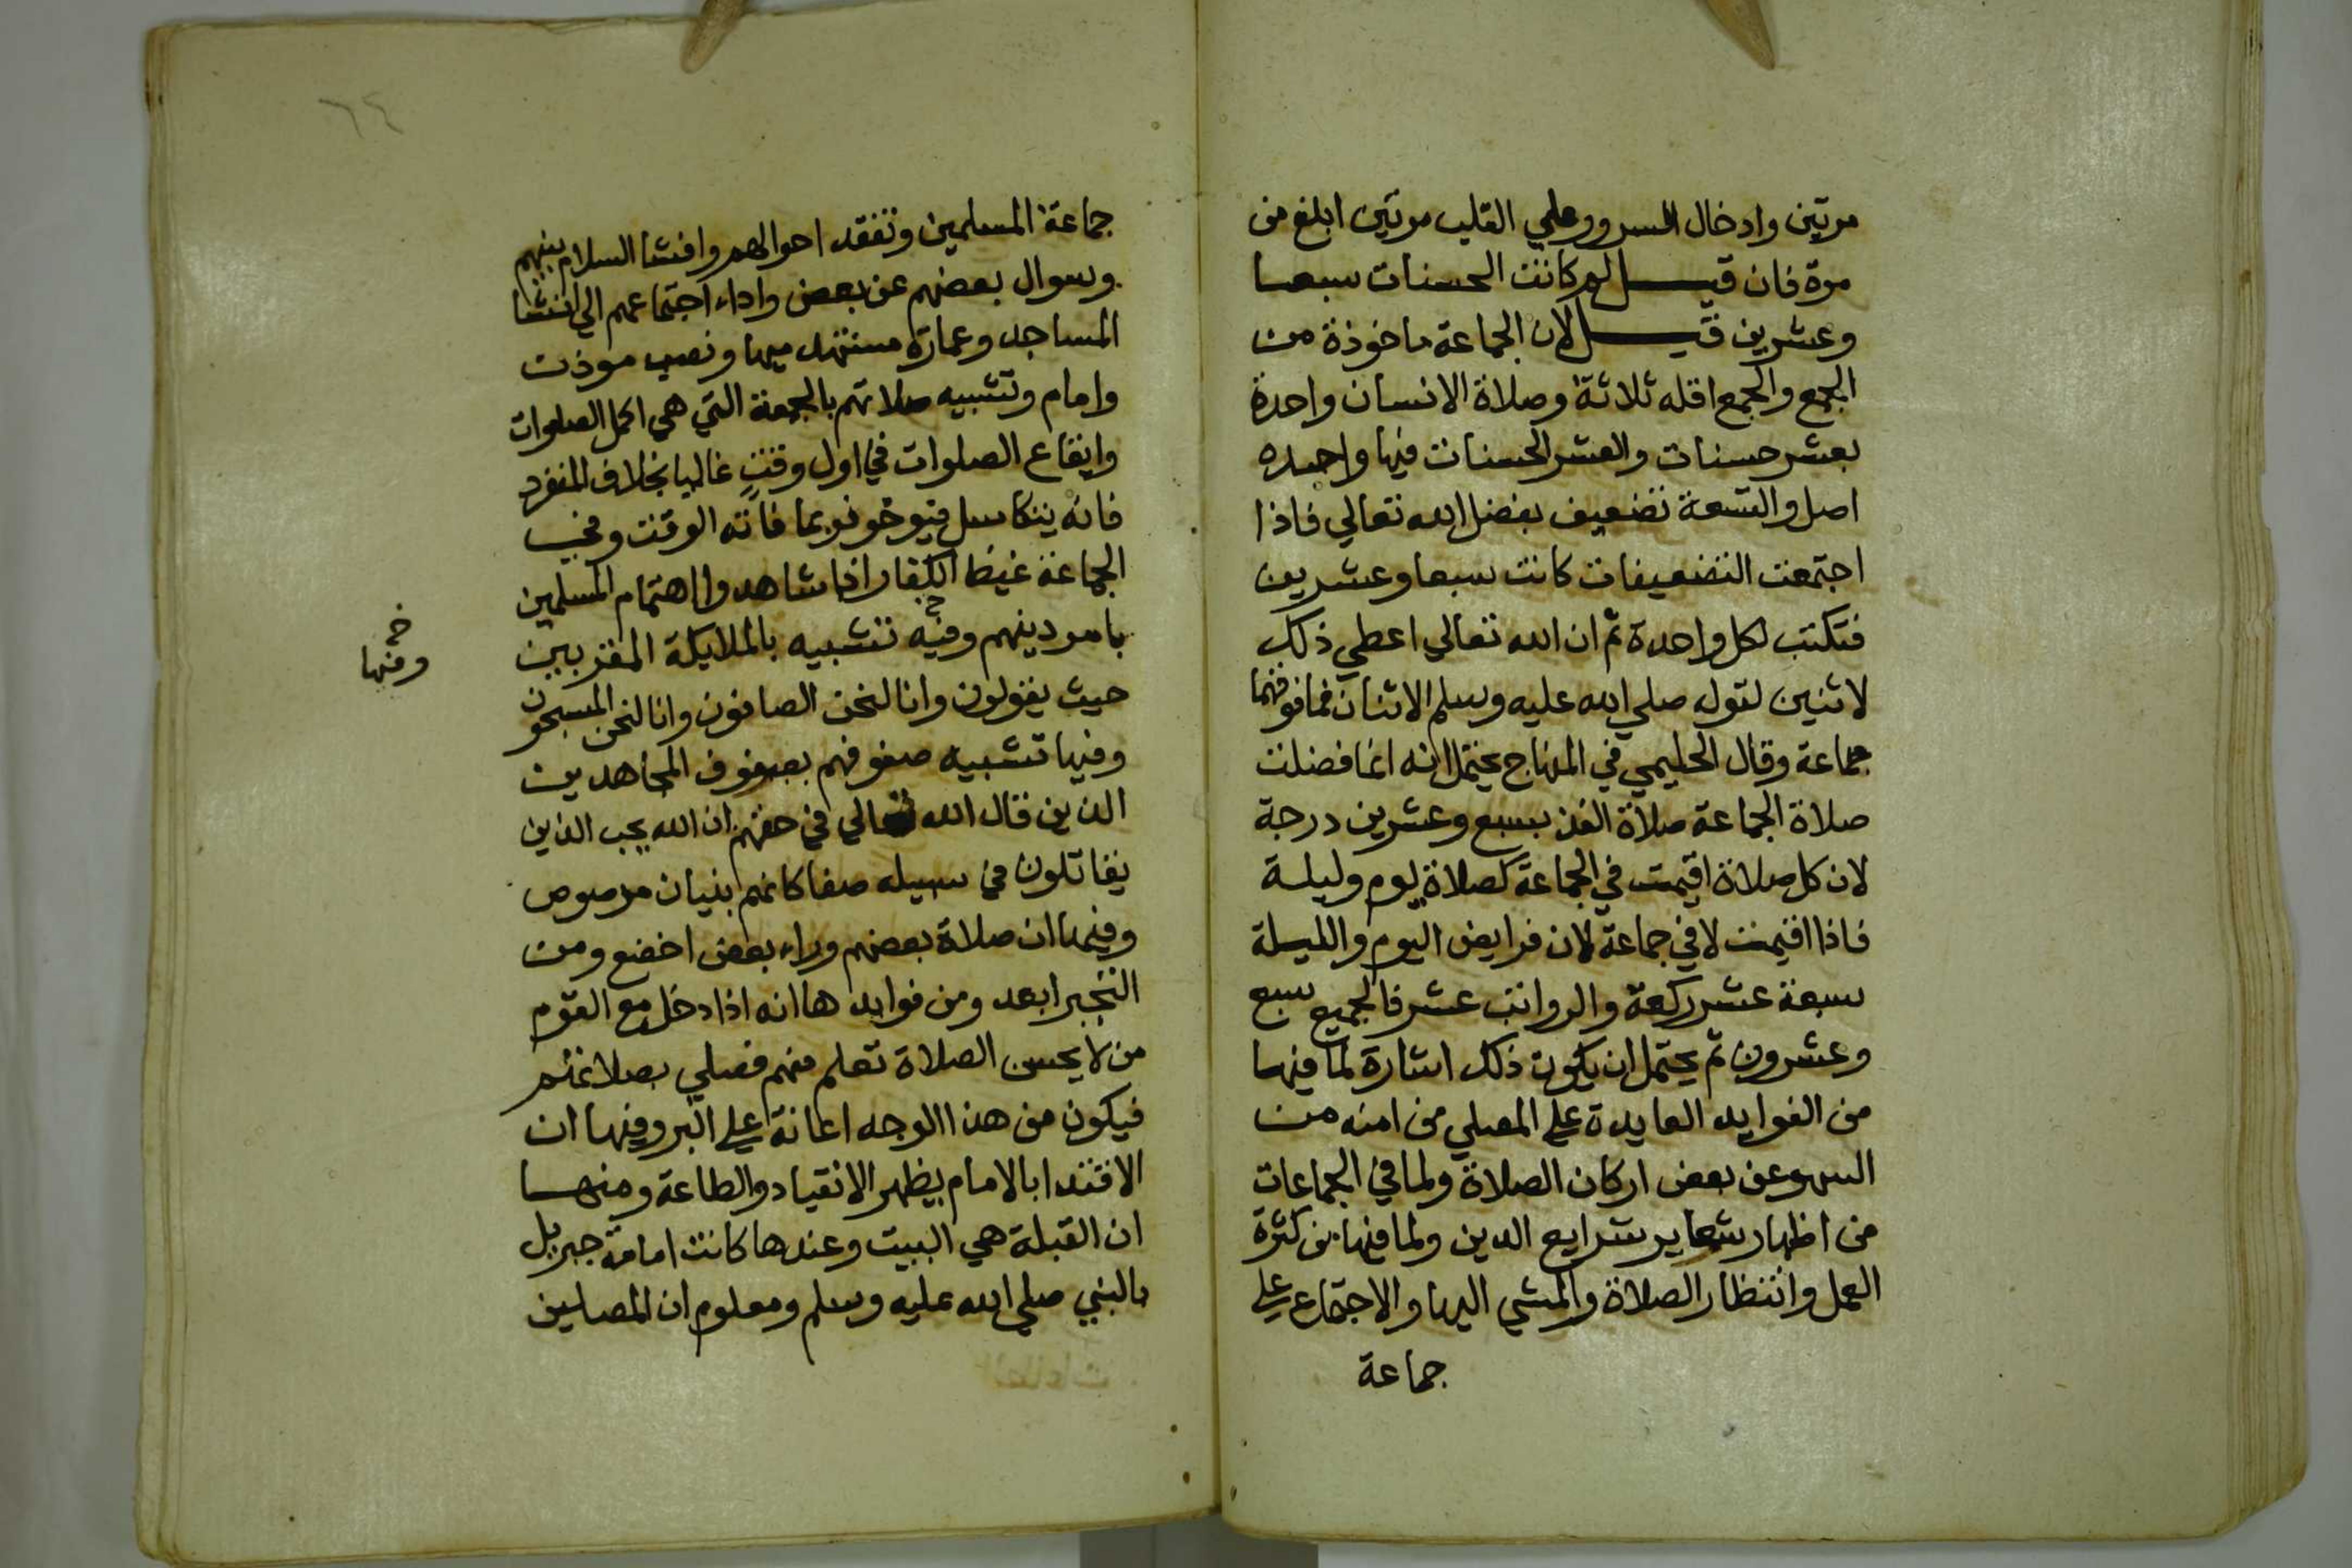 مرتين وادخال السرور وعلي القلب مرتين ابلغ من
مرة فان قيل لم كانت الحسنات سبعا
وعشرين قيل لان الجماعة ماخوذة من
الجمع والجمع اقله ثلاثة وصلاة الانسان واحدة
بعشر حسنات والعشر الحسنات فيها واحده
اصل والتسعة تضعيف بفضل الله تعالي فاذا
اجتمعت التضعيفات كانت سبعا وعشرين
فتكتب لكل واحدة ثم ان الله تعالي اعطي ذلك
لاثنين لقوله صلي الله عليه وسلم الاثنان فما فوقهما
جماعة وقال الحليمي في المنهاج يحتمل انه انما فضلت
صلاة الجماعة صلاة الفذ بسبع وعشرين درجة
لان كل صلاة اقيمت في الجماعة كصلاة يوم وليلة
فاذا اقيمت لا في جماعة لان فرايض اليوم والليلة
سبعة عشر ركعة والرواتب عشر فالجميع سبع
وعشرون ثم يحتمل ان يكون ذلك اشارة لما فيها
من الفوايد العايدة علي المصلي من امنه من
السهو عن بعض اركان الصلاة ولما في الجماعات
من اظهار شعاير شرايع الدين ولما فيها من كثرة
العمل وانتظار الصلاة والمشي اليها والاجتماع علي
جماعة
٦٤
جماعة المسلمين وتفقد احوالهم وافشا السلام بينهم
وسوال بعضهم عن بعض واداء اجتماعهم الي انشا
المساجد وعمارة مستهدميها ونصب موذن
وامام وتشبيه صلاتهم بالجمعة التي هي اكمل الصلوات
وايقاع الصلوات في اول وقت غالبا بخلاف المنفرد
فانه يتكاسل فيوخر فربما فاته الوقت وفي
الجماعة غيظ الكفار اذا شاهدوا اهتمام المسلمين
بامر دينهم وفيه تشبيه بالملايكة المقربين
حيث يقولون وانا لنحن الصافون وانا لنحن المسبحون
وفيها تشبيه صفوفهم بصفوف المجاهدين
الذين قال الله تعالي في حقهم ان الله يحب الذين
يقاتلون في سبيله صفا كانهم بنيان مرصوص
وفيها ان صلاة بعضهم وراء بعض اخضع ومن
التجبر ابعد ومن فوايدها انه اذا دخل مع القوم
من لا يحسن الصلاة تعلم منهم فصلي بصلاتهم
فيكون من هذا الوجه اعانة علي البر وفيها ان
الاقتدا بالامام يظهر الانقياد والطاعة ومنها
ان القبلة هي البيت وعندها كانت امامة جبريل
بالنبي صلي الله عليه وسلم ومعلوم ان المصلين
خ
ومنها